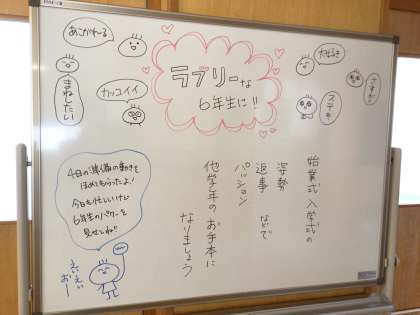 ラブリーな
6年生に!!
あこがれ〜る
まねしたい
カッコイイ
大好き
さすが!
ステキ
始業式 入学式の
姿勢
返事 などで
パッション
他学年の お手本に
なりましょう
4日の準備の動きを
ほめてもらったよ!
今日も忙しいけど
6年生のパワーを
見せてね!!
えいえい
おー